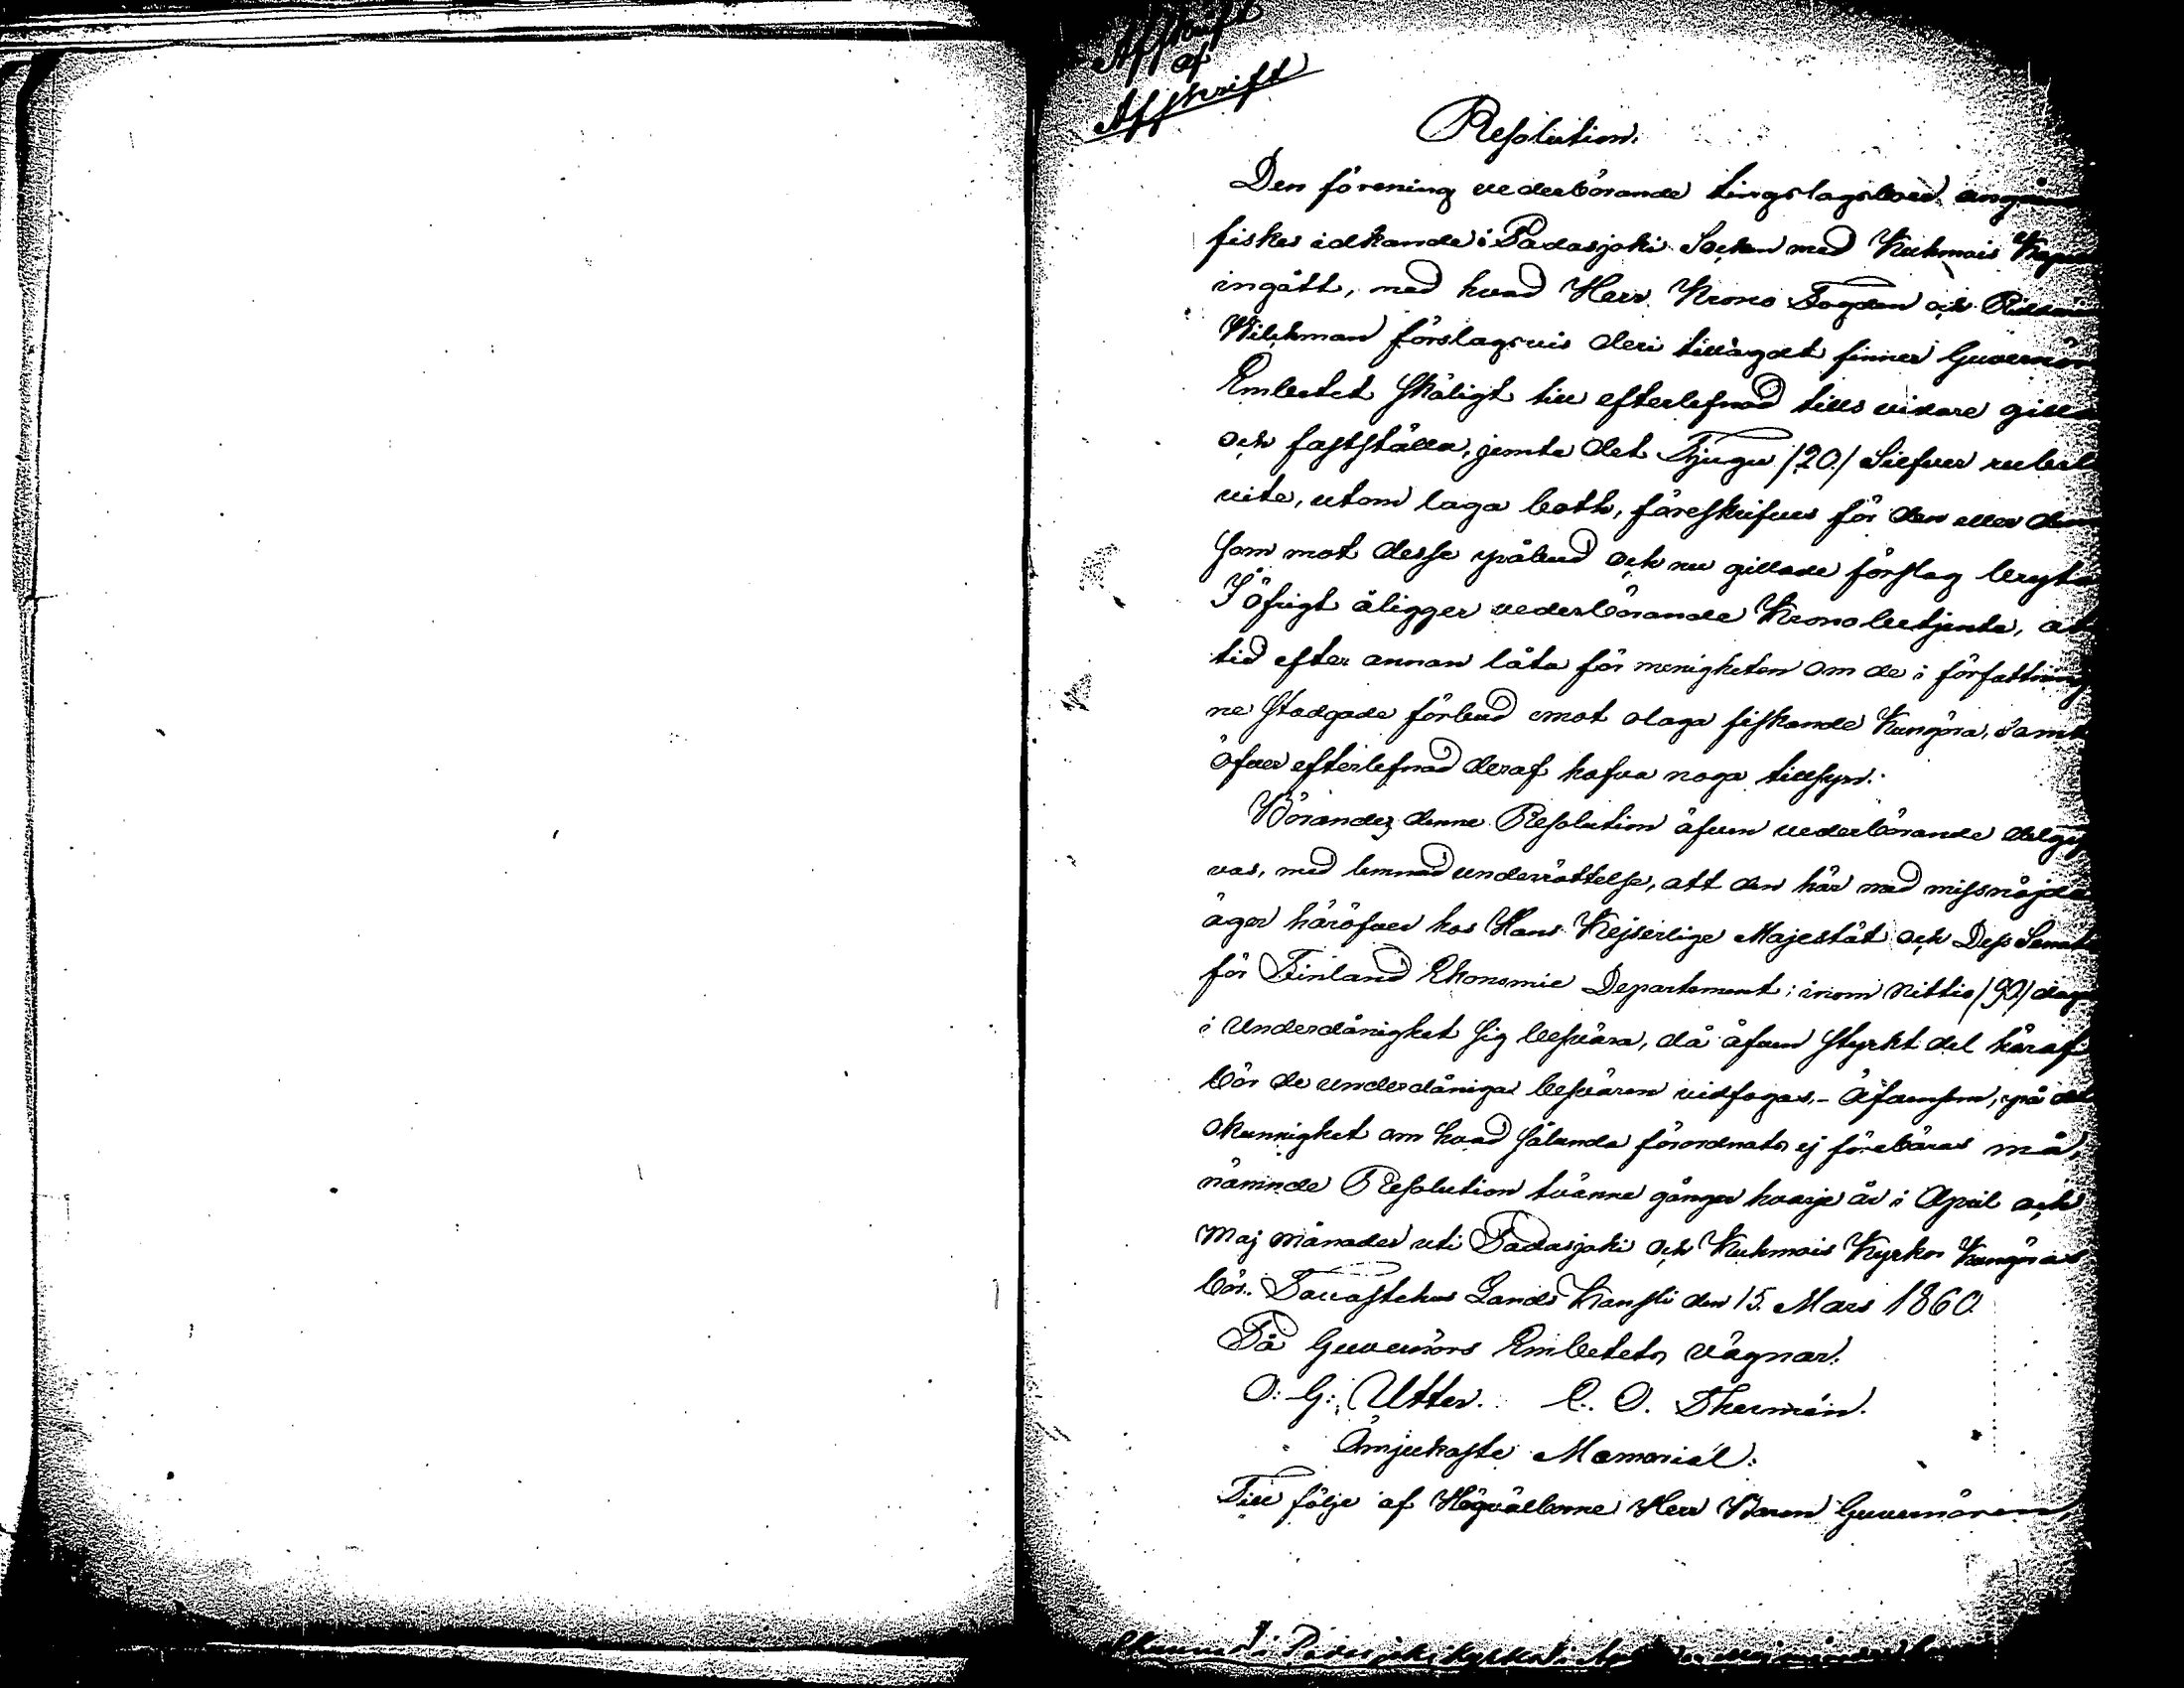 Afskrift
af
Afskrift
Resolution.
Den förening vederbörande tingslagsboer
fiskes idkande i Padasjoki Socken med Kuhmois
ingått, med hvad Herr Krono Fogden och
Wilckman förslagsvis deri tillagdt finner Guvernörs
Embetet skäligt till efterlefnad tills vidare gilla
och fastställa, jemte det Tjugu /20/ Silfver rubel
vite, utom laga both, föreskrifves för den eller dem
som mot desse påbud och nu gillade förslag bryta
I öfrigt åligger vederbörande Kronobetjente, at
tid efter annan låta för menigheten om de i författning
ne stadgade förbud emot olaga fiskande Kungöra, samt
öfver efterlefnad deraf hafva noga tillsyn.
Börandes denne Resolution äfven vederbörande delgif
vas, med lemnad underrättelse, att den här med missnöjde
äger häröfver hos Hans Kejserlige Majestät och Dess Senat
för Finland Ekonomie Departement; inom nittio /90/ dagar
i Underdånighet sig besvära, då äfven styrkt del häraf
bör de underdåniga besvären vidfogas,- Äfvensom, på det
okunnighet om hvad sålunda förordnats ej förebäras må,
nämnde Resolution tvänne gånger hvarje år i April och
Maj månader uti Padasjoki och Kuhmois Kyrkor Kungöras
bör. Tavastehus Lands Kansli den 15. Mars 1860.
På Guvernörs Embetets vägnar.
O: G: Utter. C. O. Thermén.
Ömjukaste Memorial:
Till följe af Högvälborne Herr Baron Guvernören,